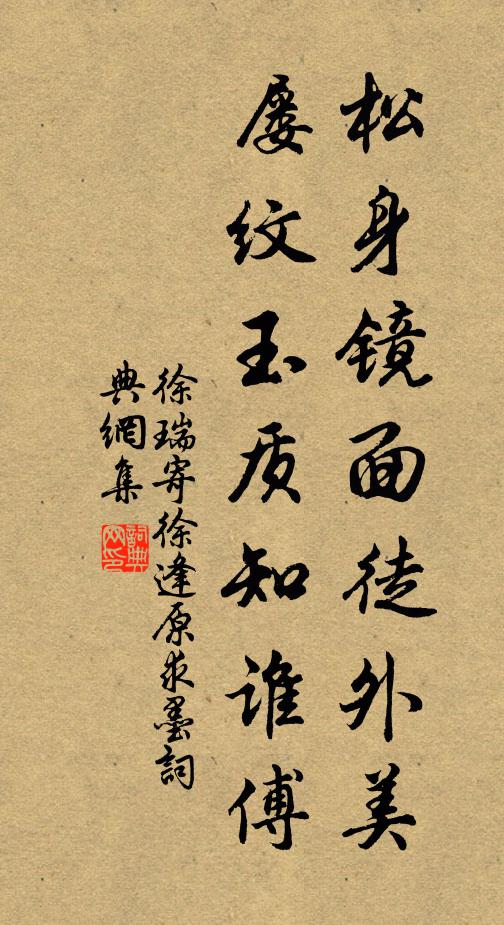 松身镜面徒外美
屡纹玉质知谁傅
徐瑞寄徐逢原求墨詞
典網集
詞典
网印